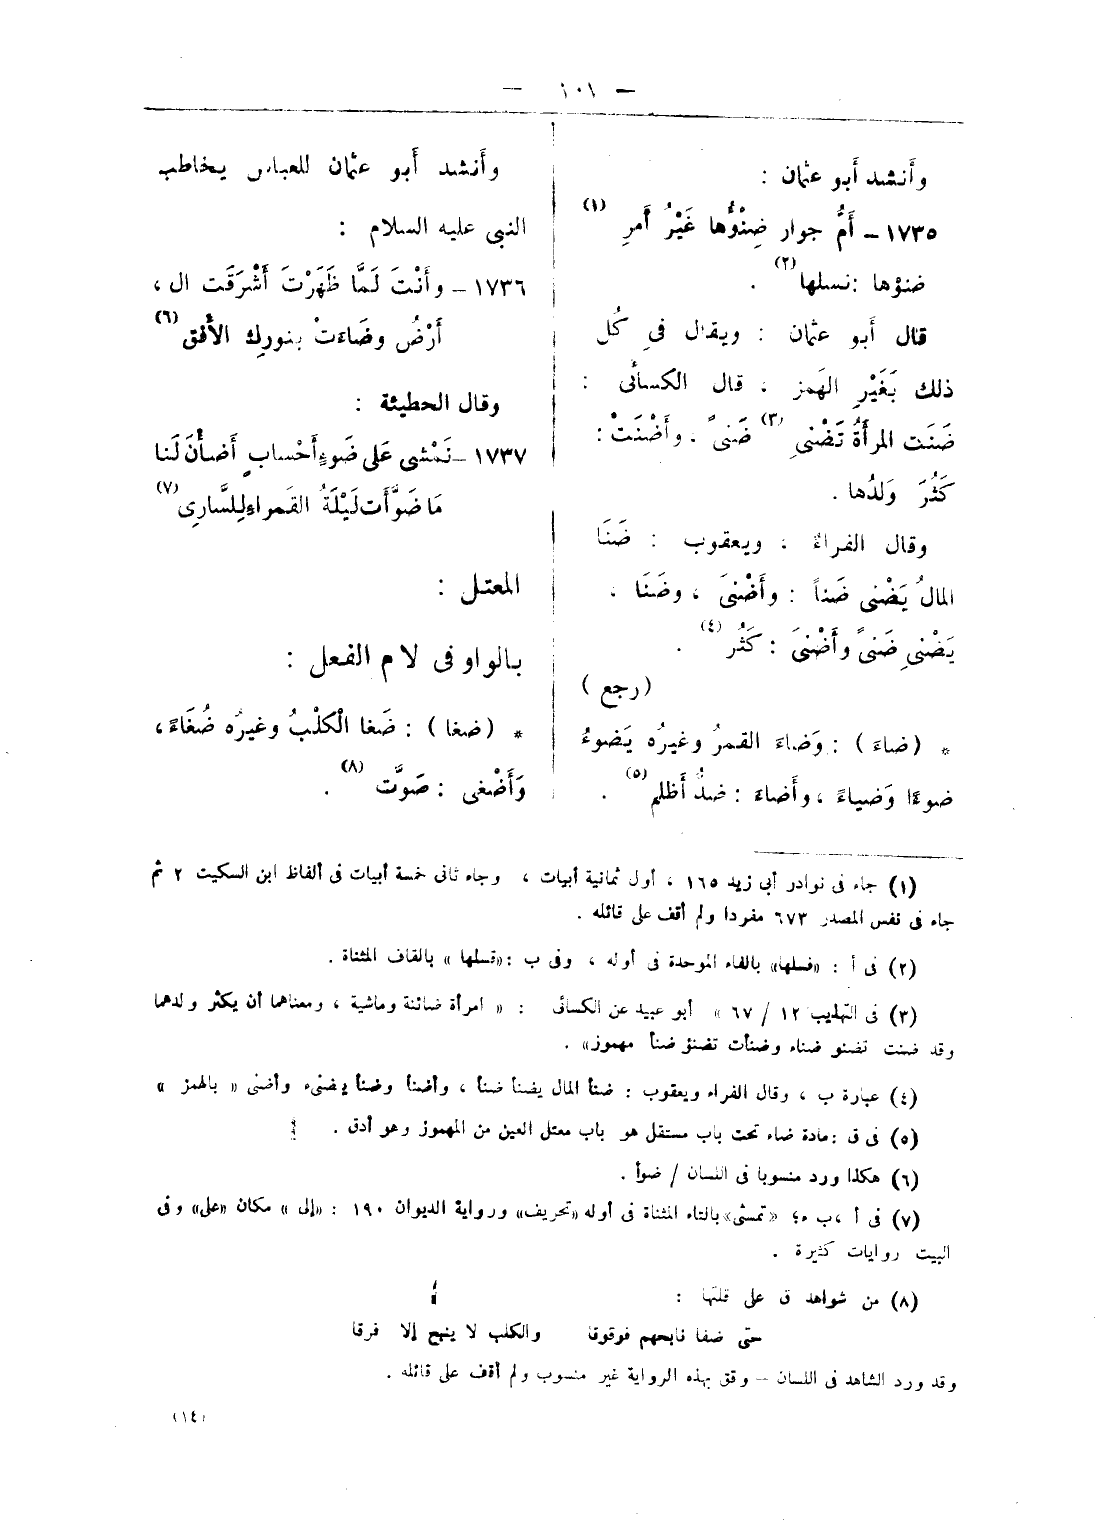 — ٢٠١ —
وأَنشد أَبو عثمان :
١٧٣٥ – أُمُّ جوار ضِنْؤُها غَيْرُ أَمرِ (١)
ضنؤها : نسلها (٢) .
قال أَبو عثمان : ويقال فى كُل
ذلك بَغَيْرِ الهَمز ، قال الكسائى :
ضَنَت المرأَةُ تَضْنِى (٣) ضَنىً ، وأَضْنَتْ :
كَثُرَ وَلدُها .
وقال الفراءُ ، ويعقوب : ضَنَا
المالُ يَضْنى ضَناً : وأَضْنىَ ، وضَنَا ،
يَضْنِى ضَنىً وأَضْنىَ : كَثُر (٤) .
( رجع )
* ( ضاءَ ) : وَضاءَ القمرُ وغيرُه يَضوءُ
ضوءًا وَضياءً ، وأَضاءَ : ضدُّ أَظلم (٥) .
وأَنشد أَبو عثمان للعباس يخاطب
النبى عليه السلام :
١٧٣٦ – وأَنْتَ لَمَّا ظَهَرْتَ أَشْرَقَت ال ،
أَرْضُ وضَاءَتْ بنورِك الأُفق (٦)
وقال الحطيئة :
١٧٣٧ – نَمْشى عَلى ضَوءِ أَحْسابٍ أَضأْنَ لَنا
مَا ضَوَّأَت لَيْلَةُ القمراءِ لِلسَّارِى (٧)
المعتل :
بالواو فى لام الفعل :
* ( ضغا ) : ضَغا الْكلْبُ وغيرُه ضُغَاءً ،
وَأَضْغى : صَوَّت (٨) .
(١) جاء فى نوادر أبى زيد ١٦٥ ، أول ثمانية أبيات ، وجاء ثانى خمسة أبيات فى ألفاظ ابن السكيت ٢ ثم
جاء فى نفس المصدر ٦٧٣ مفردا ولم أقف على قائله .
(٢) فى أ : «فسلها» بالفاء الموحدة فى أوله ، وفى ب : «قسلها» بالقاف المثناة .
(٣) فى التهذيب ١٢ / ٦٧ » أبو عبيد عن الكسائى : « امرأة ضائنة وماشية ، ومعناهما أن يكثر ولدهما
وقد ضنت تضنو ضناء وضنأت تضنؤ ضنأ مهموز» .
(٤) عبارة ب ، وقال الفراء ويعقوب : ضنأ المال يضنأ ضنأ ، وأضنأ وضنأ يضنىء وأضنى « بالهمز »
(٥) فى ق : مادة ضاء تحت باب مستقل هو باب معتل العين من المهموز وهو أدق .
(٦) هكذا ورد منسوبا فى اللسان / ضوأ .
(٧) فى أ ، ب «تمشى» بالتاء المثناة فى أوله «تحريف» ورواية الديوان ١٩٠ : «إلى» مكان «على» وفى
البيت روايات كثيرة .
(٨) من شواهد ق على قلتها :
حتى ضغا نابحهم فوقوقا والكلب لا ينبح إلا فرقا
وقد ورد الشاهد فى اللسان – وقق بهذه الرواية غير منسوب ولم أقف على قائله .
(١٤)